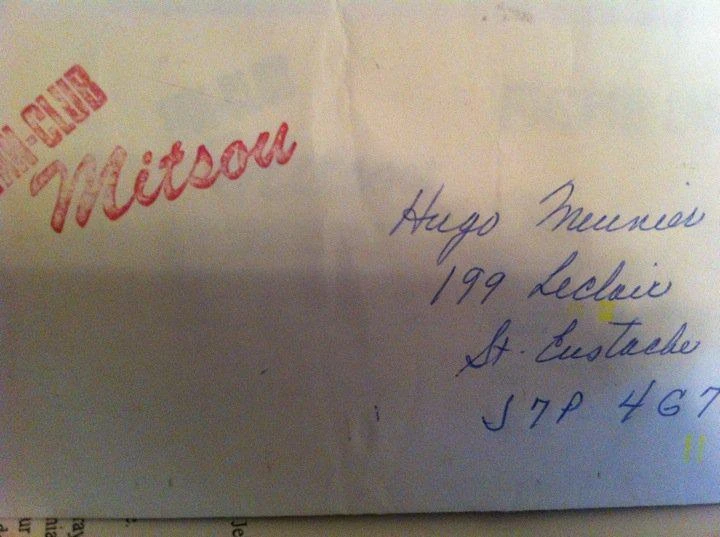 FAN-CLUB
Mitsou
Hugo Meunier
199 Leclair
St. Eustache
J7P 4G7